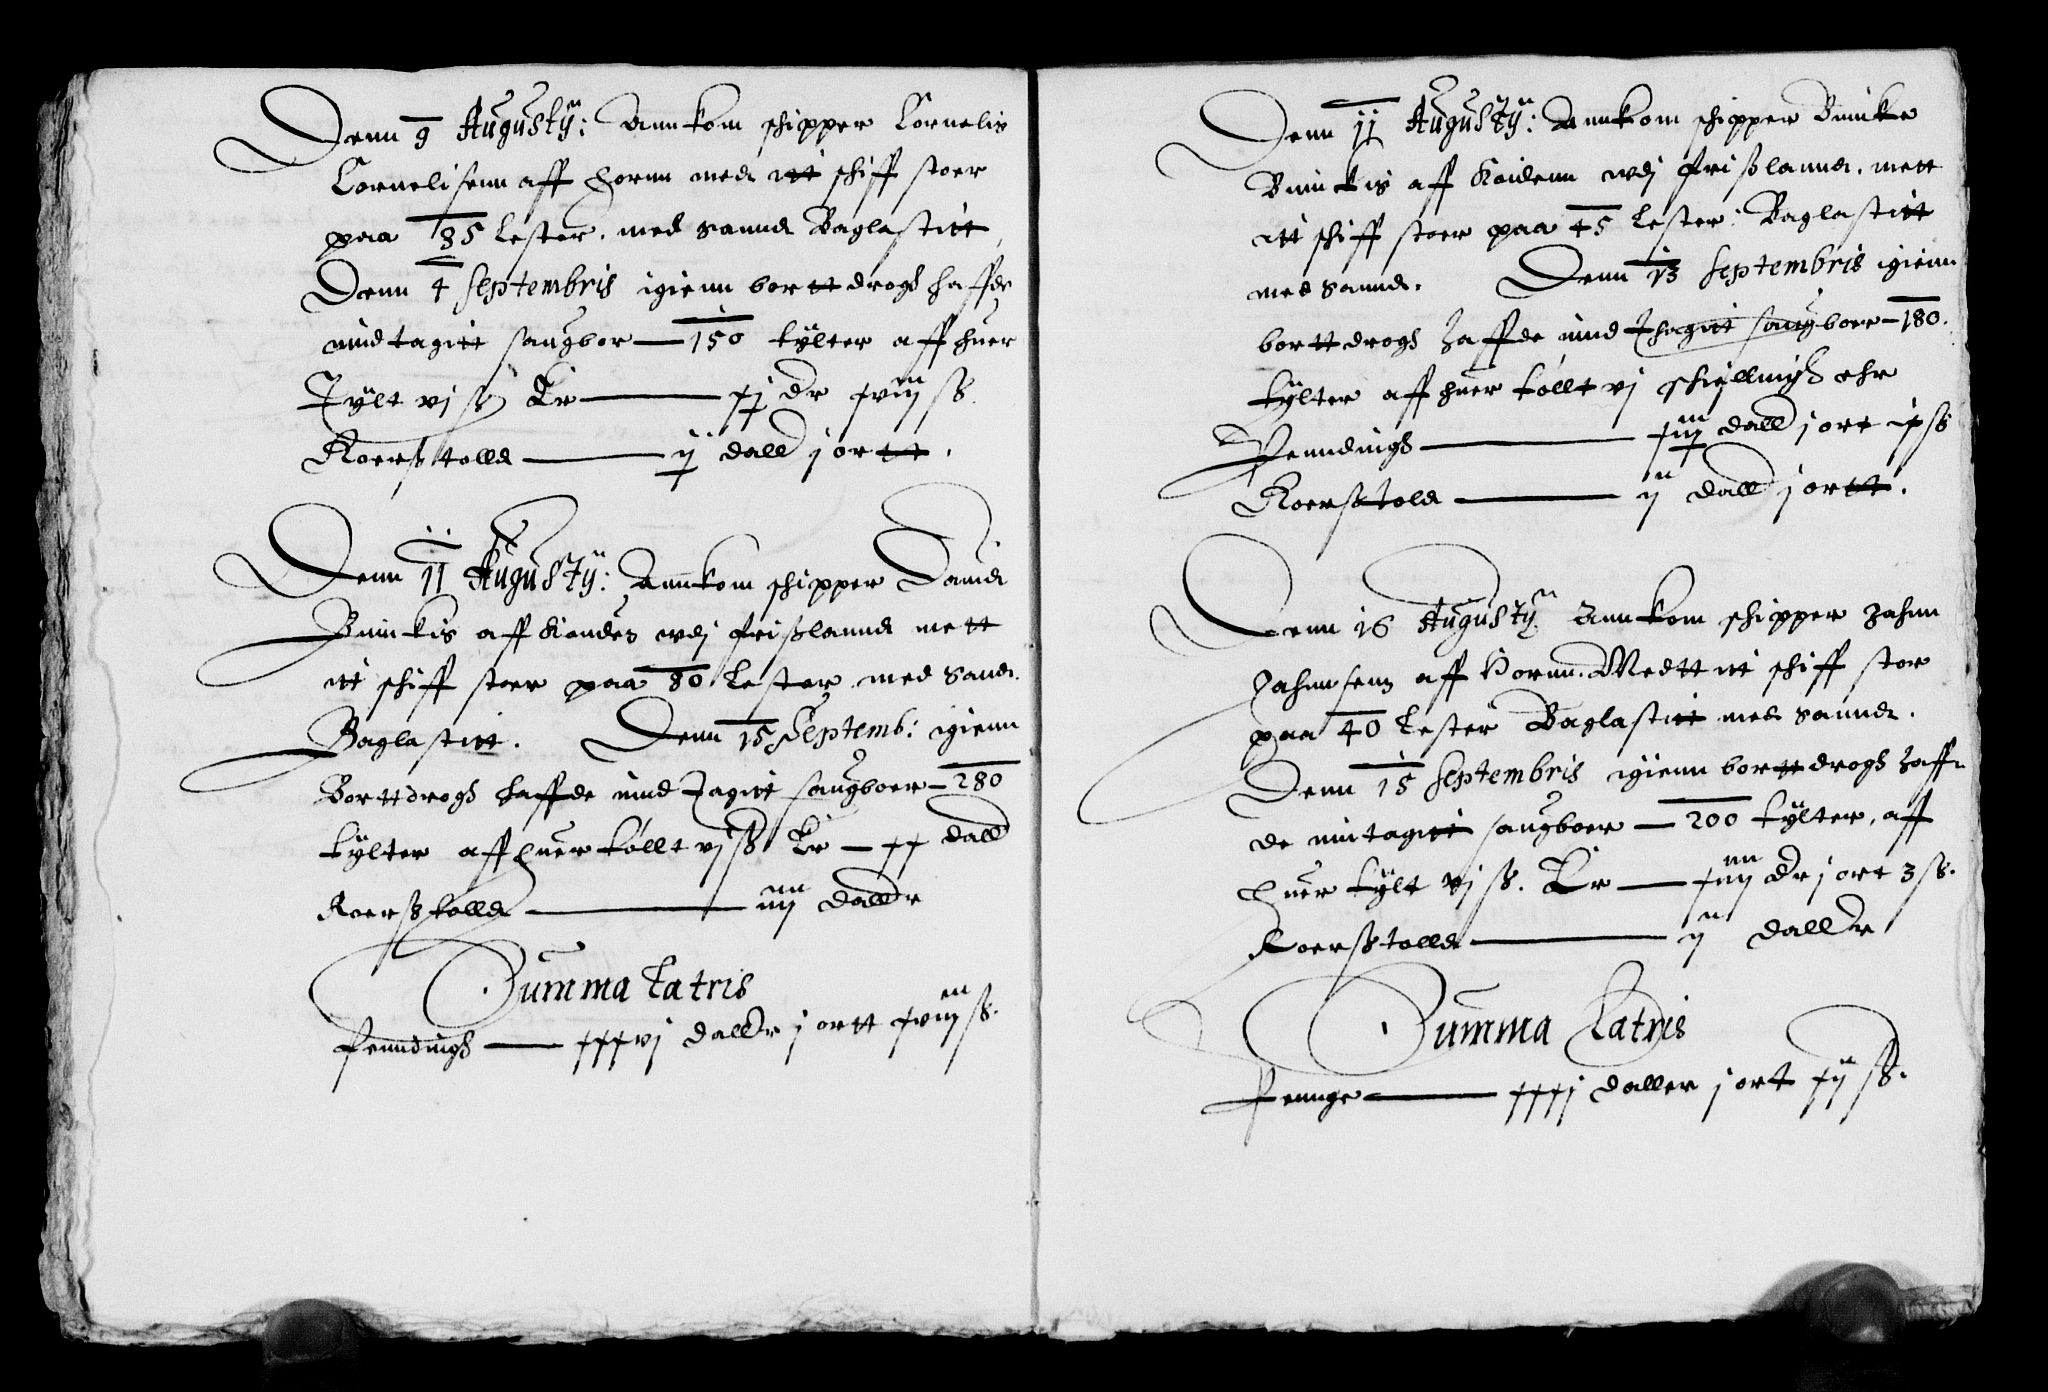 Denn 9 Augustij: Annkom schipper Cornelis
Cornelisenn aff Hornn med itt schiff stoer
paa 85 Lester, med sannd Baglastitt,
Denn 4 Septembris igienn bortt drogh haffde
inndtagitt saugbor — 150 tylter aff huer
Tylt vj ß Er — xj dr xviij ß
Koerßtolld — ij dall j ortt.
Denn 11 Augustij: Annkom schipper Dauid
Buinkis aff wdj Frißlannd mett
itt schiff stoer paa 80 Lester med Sand
Baglastitt. Denn 15 Septemb: igienn
Borttdrogh haffde innd Tagitt saugboer — 280
tylter aff huer tôllt vj ß Er — xx dall
Koerßtolld — iiij dalldr
Summa Latris
Penndingh — xxxvj dalldr j ortt xviij ß.
Denn 11 Augustij: Annkom schipper Buinke
Buinkis aff wdj Frißlannd. mett
itt schiff stoer paa 45 Lester: Baglastitt
med sannd. Denn 13 Septembris igienn
borttdrogh Haffde innd Thagitt saugboer — 180.
tylter aff huer tôllt vj schiellingh ehr
Penndingh — xiij dall j ort ix ß
Koerßtold — ij dall j ortt.
Denn 16 Augustij. Annkom schipper Jahnn
Jahnnsenn aff Hornn. Medtt itt schiff stor
paa 40 Lester Baglastitt med sannd.
Denn 15 Septembris igienn borttdrogh Haff-
de inntagitt saugboer — 200 tylter, aff
huer tylt vj ß. Er — xiiij dr j ort 3 ß.
Koerßtolld — ij dalldr
Summa Latris
Pennge — xxxj daller j ort xij ß.